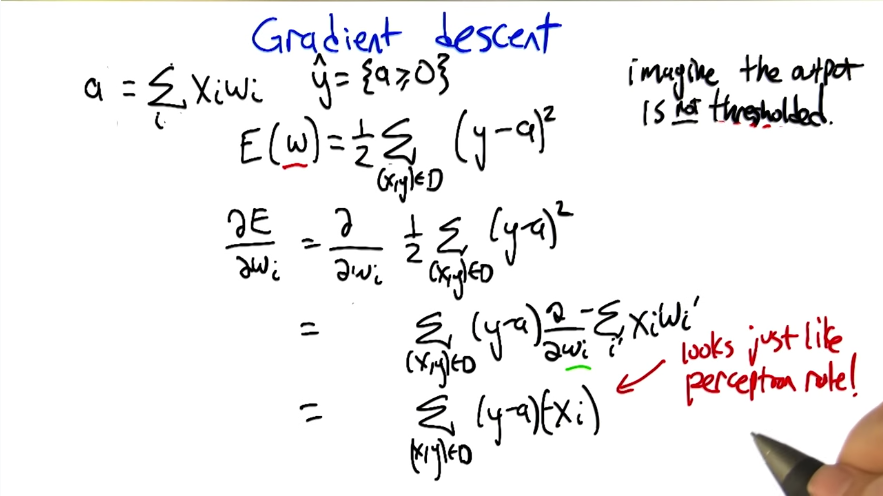 Gradient descent
a = Σ_i x_i w_i   ŷ = {a ≥ 0}
imagine the output
is not thresholded.
E(w) = 1/2 Σ_(x,y)∈D (y-a)²
∂E/∂w_i = ∂/∂w_i 1/2 Σ_(x,y)∈D (y-a)²
= Σ_(x,y)∈D (y-a) ∂/∂w_i - Σ_i' x_i w_i'
looks just like
perceptron rule!
= Σ_(x,y)∈D (y-a)(-x_i)